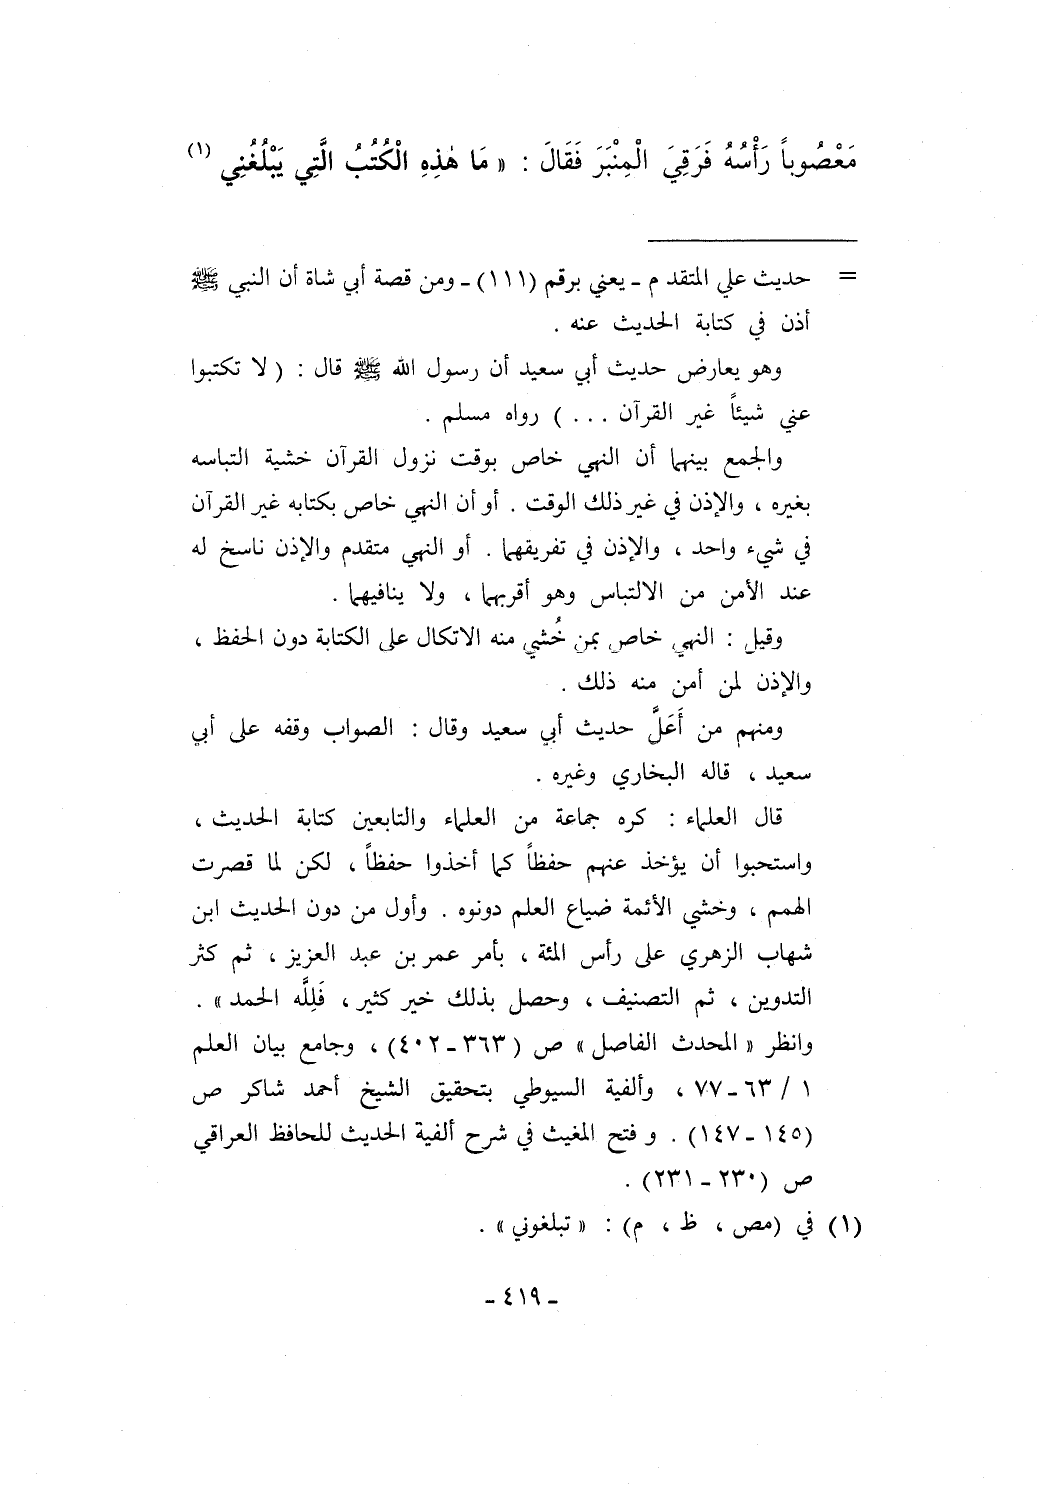 مَعْصُوباً رَأْسُهُ فَرَقِيَ الْمِنْبَرَ فَقَالَ : « مَا هٰذِهِ الْكُتُبُ الَّتِي يَبْلُغُنِي (١)
= حديث علي المتقد م ـ يعني برقم (١١١) ـ ومن قصة أبي شاة أن النبي ﷺ
أذن في كتابة الحديث عنه .
وهو يعارض حديث أبي سعيد أن رسول الله ﷺ قال : ( لا تكتبوا
عني شيئاً غير القرآن ... ) رواه مسلم .
والجمع بينهما أن النهي خاص بوقت نزول القرآن خشية التباسه
بغيره ، والإذن في غير ذلك الوقت . أو أن النهي خاص بكتابه غير القرآن
في شيء واحد ، والإذن في تفريقهما . أو النهي متقدم والإذن ناسخ له
عند الأمن من الالتباس وهو أقربهما ، ولا ينافيهما .
وقيل : النهي خاص بمن خُشي منه الاتكال على الكتابة دون الحفظ ،
والإذن لمن أمن منه ذلك .
ومنهم من أَعَلَّ حديث أبي سعيد وقال : الصواب وقفه على أبي
سعيد ، قاله البخاري وغيره .
قال العلماء : كره جماعة من العلماء والتابعين كتابة الحديث ،
واستحبوا أن يؤخذ عنهم حفظاً كما أخذوا حفظاً ، لكن لما قصرت
الهمم ، وخشي الأئمة ضياع العلم دونوه . وأول من دون الحديث ابن
شهاب الزهري على رأس المئة ، بأمر عمر بن عبد العزيز ، ثم كثر
التدوين ، ثم التصنيف ، وحصل بذلك خير كثير ، فَلِلَّه الحمد » .
وانظر « المحدث الفاصل » ص ( ٣٦٣ ـ ٤٠٢) ، وجامع بيان العلم
١ / ٦٣ ـ ٧٧ ، وألفية السيوطي بتحقيق الشيخ أحمد شاكر ص
(١٤٥ ـ ١٤٧) . و فتح المغيث في شرح ألفية الحديث للحافظ العراقي
ص (٢٣٠ ـ ٢٣١) .
(١) في (مص ، ظ ، م) : « تبلغوني » .
ـ ٤١٩ ـ